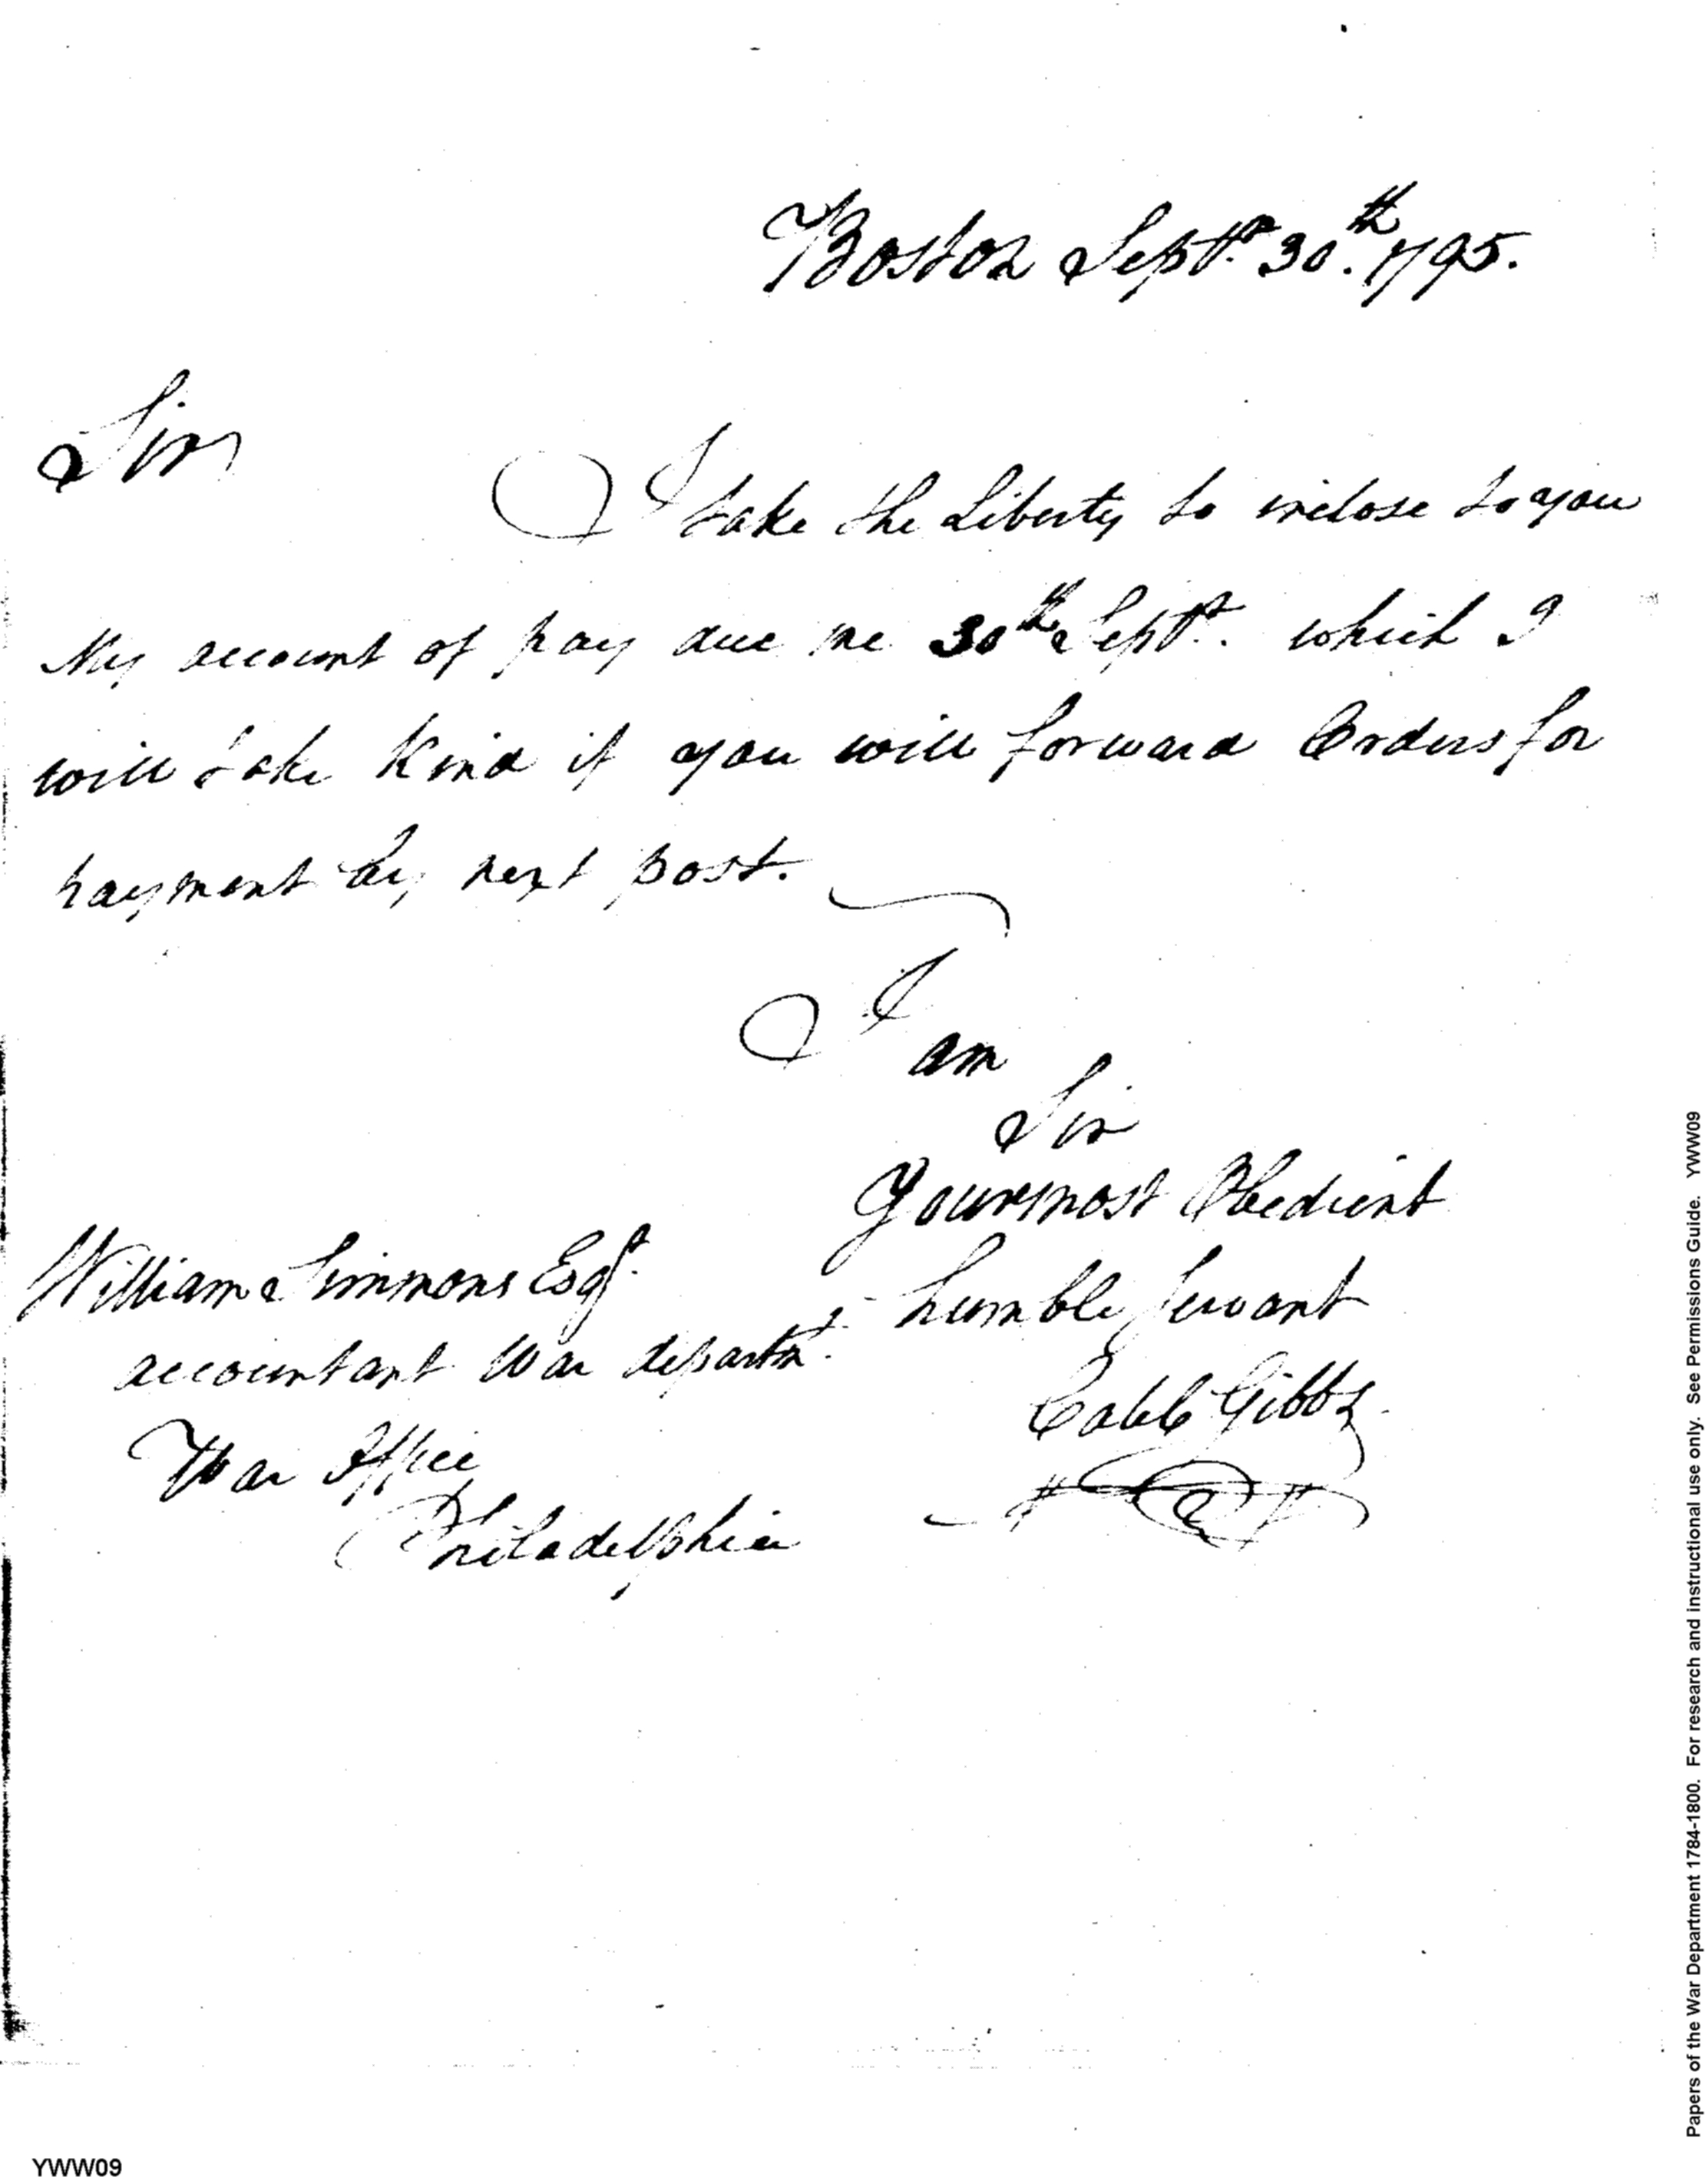 Boston Septr. 30.th 1795.
Sir
I take the Liberty to inclose to you
My account of pay due me 30th Septr. which I
will take kind if you will forward Orders for
payment by next post.
I am
Sir
Your most Obedient
humble servant
Caleb Gibbs
William Simmons Esqr.
accountant War departmt.
War Office
Philadelphia
Papers of the War Department 1784-1800. For research and instructional use only. See Permissions Guide. YWW09
YWW09